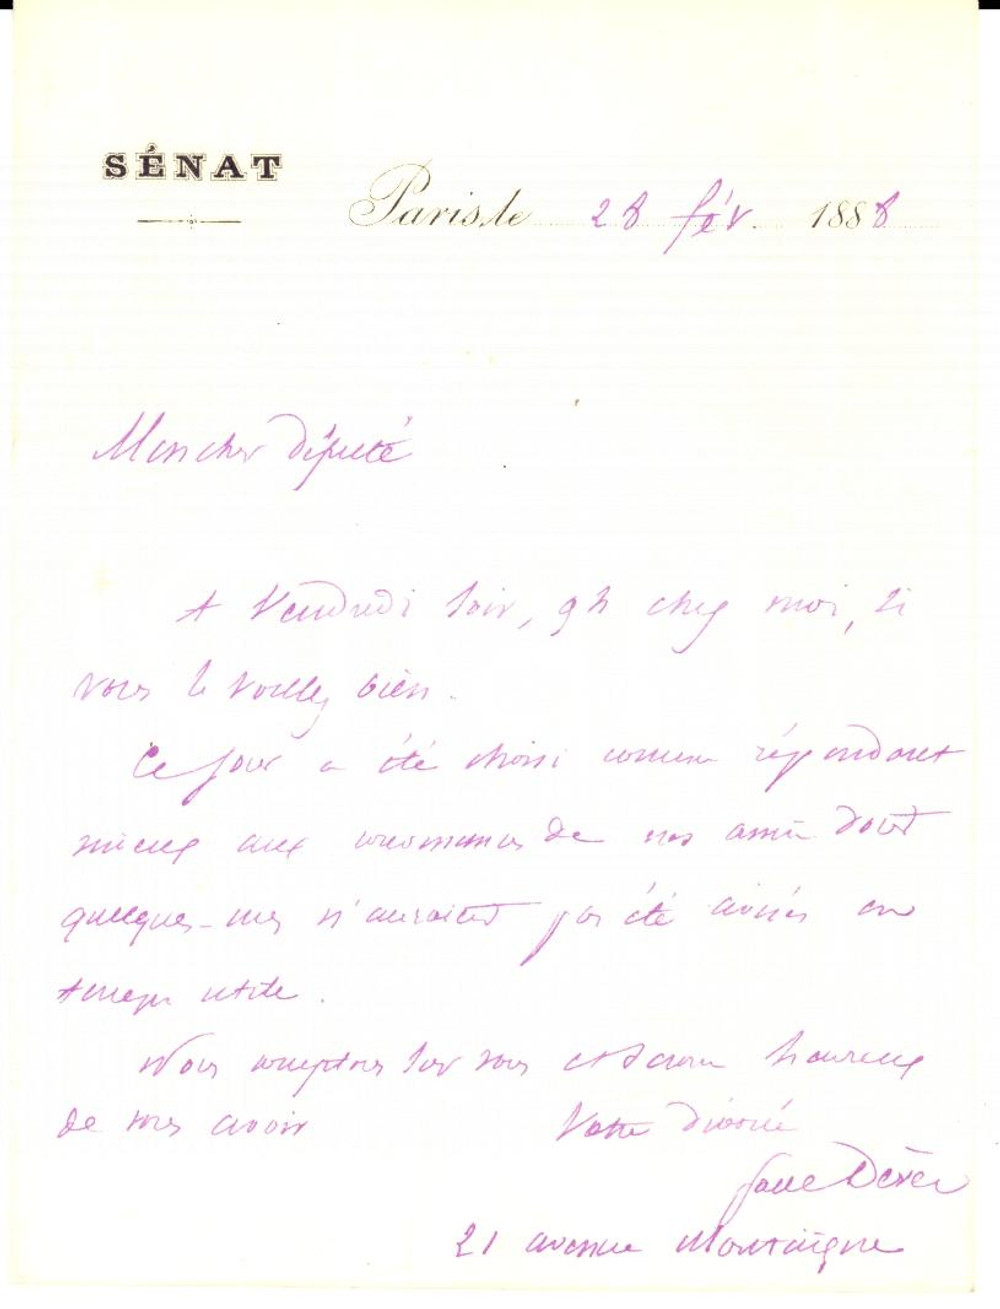 SÉNAT
Paris, le 28 fév. 1888
Mon cher député
A Vendredi soir, 9 h chez moi, si
vous le voulez bien.
Ce jour a été choisi comme répondant
mieux aux convenances de nos amis dont
quelques-uns n'auraient pas été avisés en
temps utile.
Nous comptons sur vous et serons heureux
de vous avoir Votre dévoué
21 avenue Montaigne